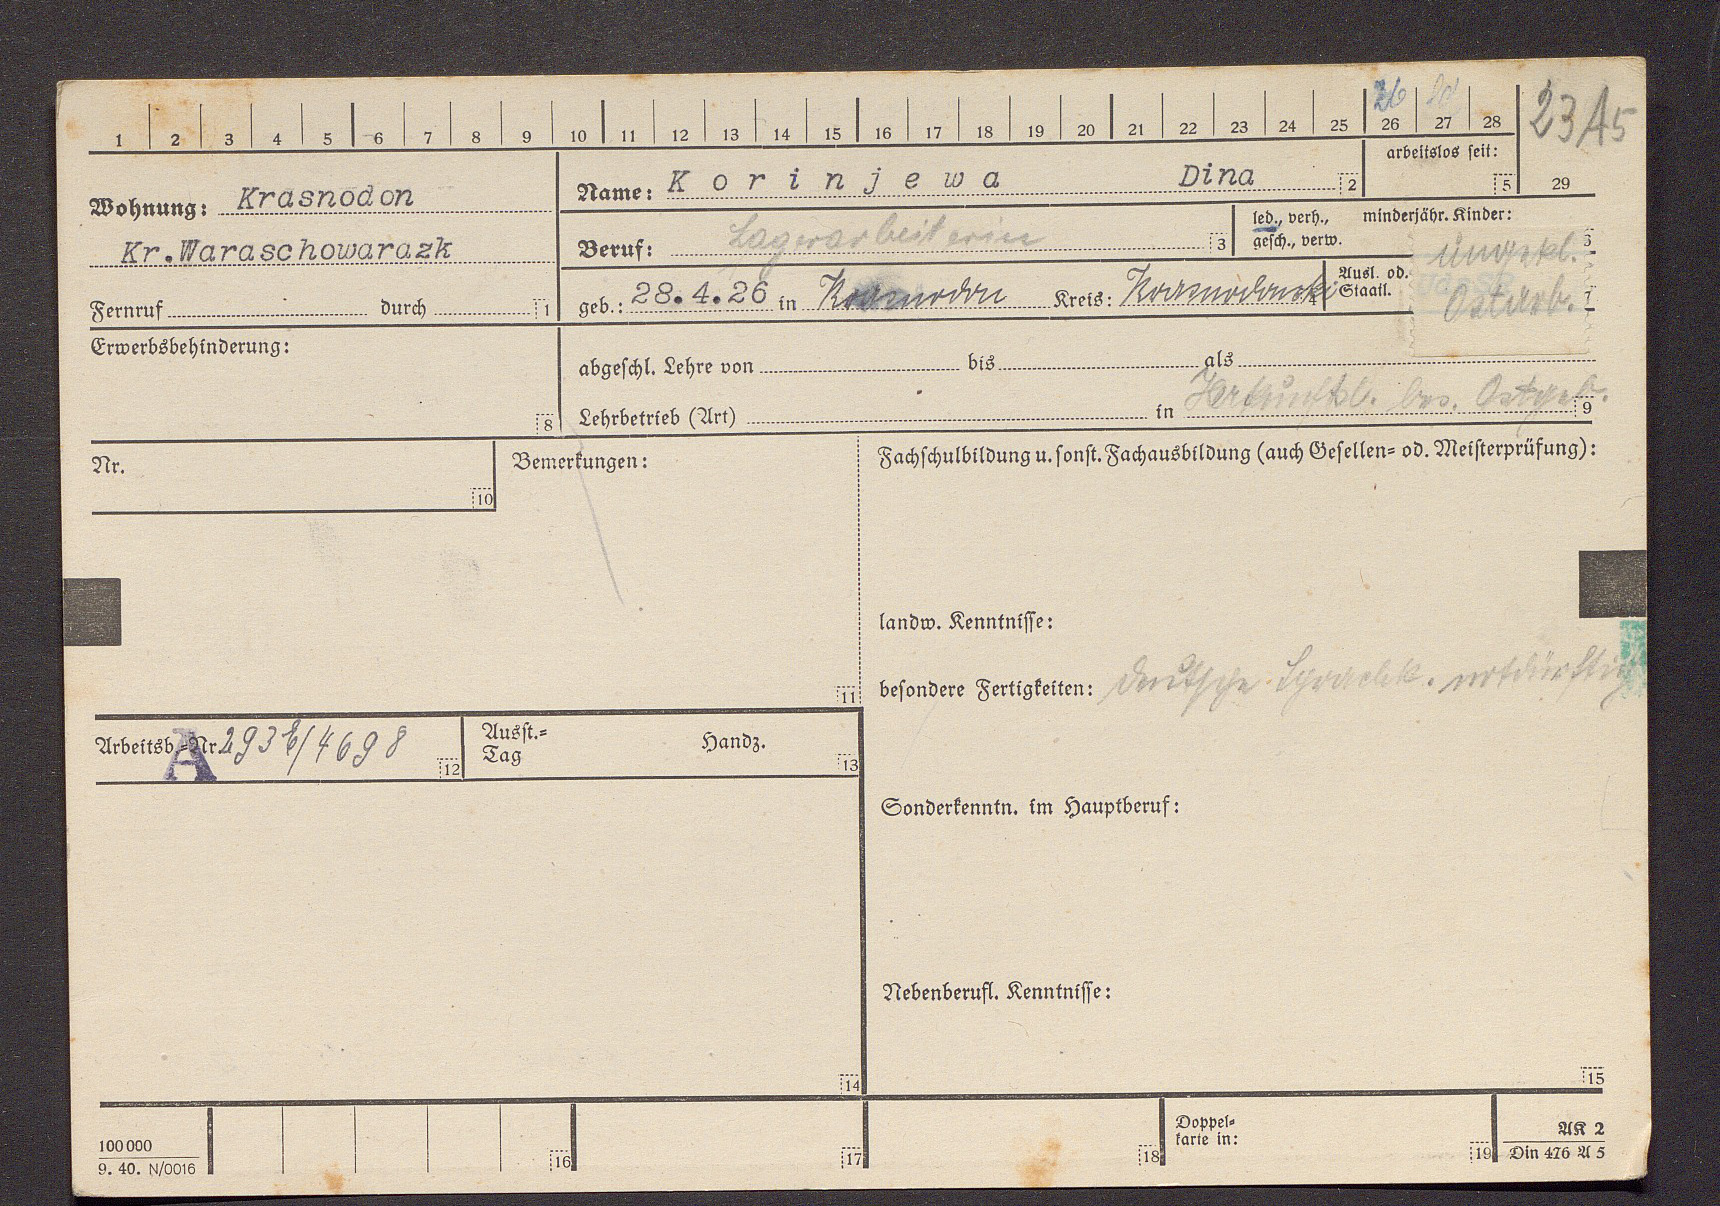 1 2 3 4 5 6 7 8 9 10 11 12 13 14 15 16 17 18 19 20 21 22 23 24 25 26 27 28 29
26
23 A5
arbeitslos seit: 5
Wohnung: Krasnodon
Kr.Waraschowarazk
Fernruf durch 1
Name: Korinjewa Dina 2
Beruf: Lagerarbeiterin 3
led., verh., gesch., verw.
minderjähr. Kinder:
ungekl.
geb.: 28.4.26 in Krasnodon Kreis: Krasnodonski
Ausl. od. Staatl.
Ostarb.
Erwerbsbehinderung: 8
abgeschl. Lehre von bis als
Lehrbetrieb (Art) in 9
Herkunftsl. bes. Ostgeb.
Nr. 10
Bemerkungen: 11
Fachschulbildung u. sonst. Fachausbildung (auch Gesellen- od. Meisterprüfung):
landw. Kenntnisse:
besondere Fertigkeiten: deutsche Sprachk. notdürftig
Arbeitsb.-Nr. A 293b/4698 12
Ausst.-Tag Handz. 13
Sonderkenntn. im Hauptberuf:
Nebenberufl. Kenntnisse:
14
15
100 000
9. 40. N/0016
16
17
18
Doppel-
karte in: 19
AK 2
Din 476 A 5